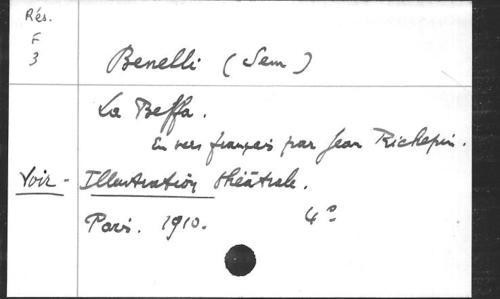 Rés.
F
3
Benelli (Sem)
La Beffa.
En vers français par Jean Richepin.
Voir - Illustration théâtrale.
Paris. 1910. 4°